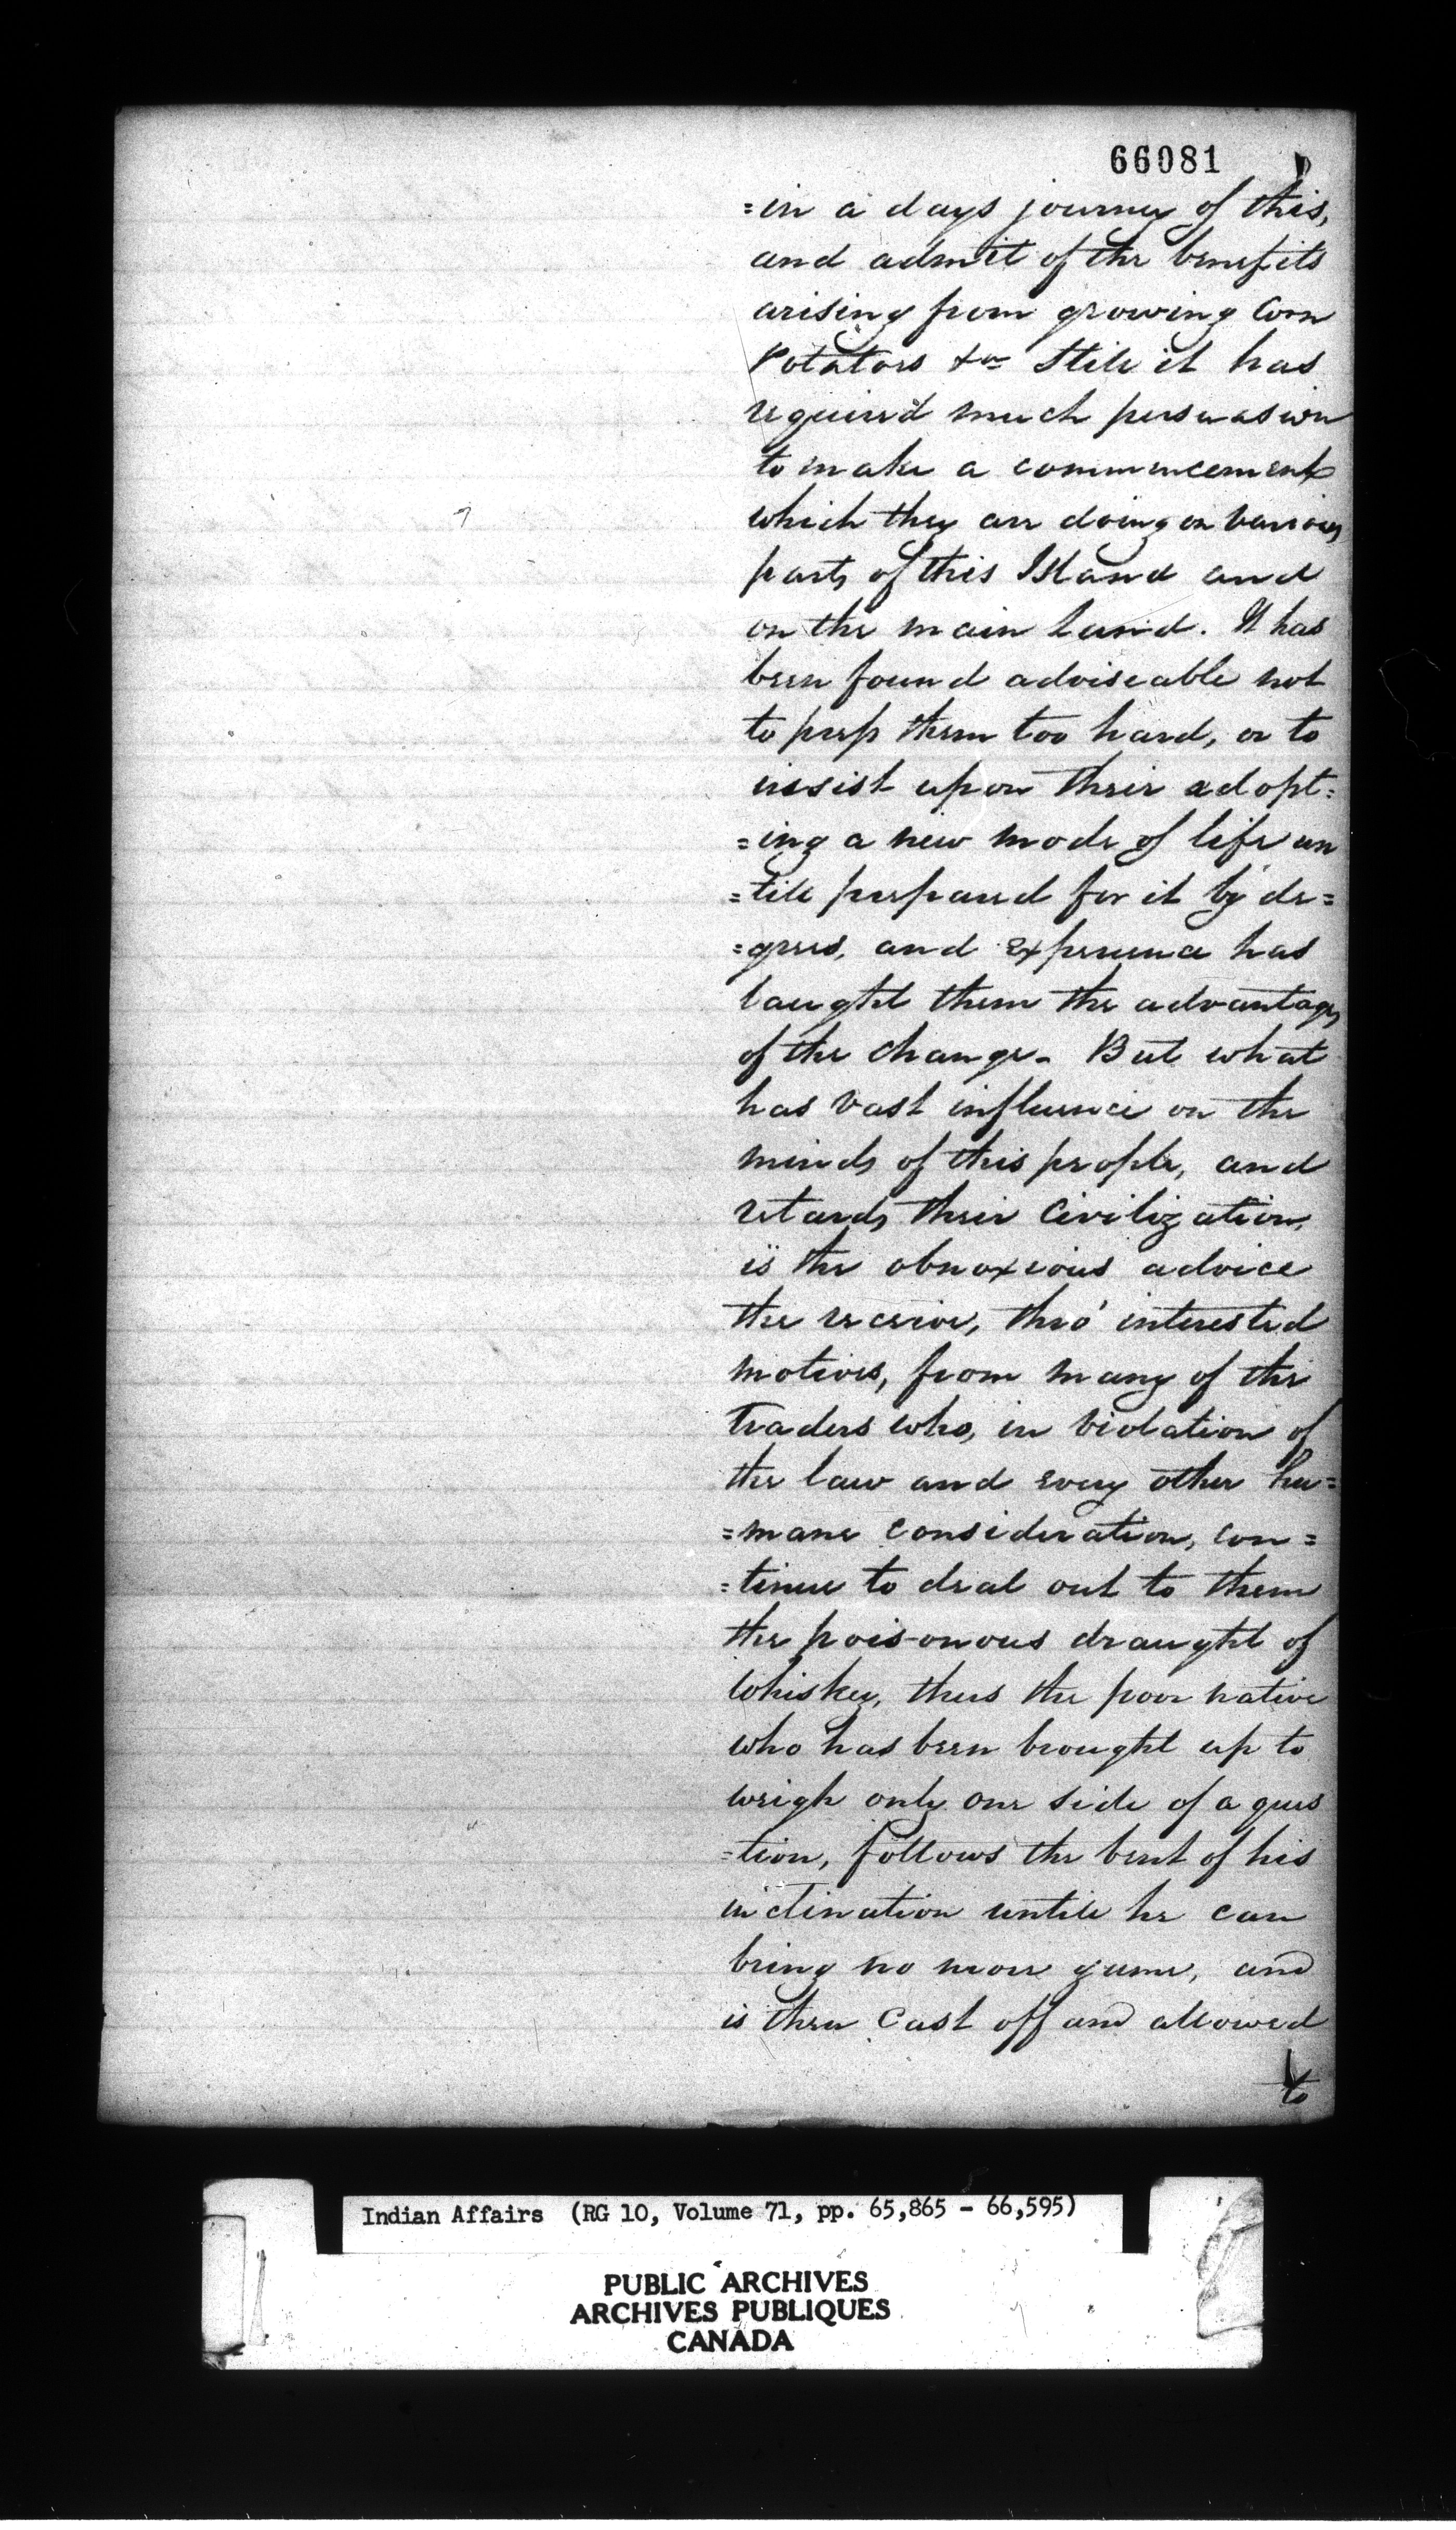 66081
=in a days journey of this,
and admit of the benefits
arising from growing Corn
Potatoes &c Still it has
required much persuasion
to make a commencement
which they are doing on various
parts of this Island and
on the main land. It has
been found adviseable not
to press them too hard, or to
insist upon their adopt=
=ing a new mode of life un
=till prepared for it by de=
=grees, and experience has
taught them the advantages
of the change. But what
has vast influence on the
minds of this people, and
retards their Civilization,
is the obnoxious advice
the receive, thro' interested
motives, from many of the
Traders who, in violation of
the law and every other hu=
=mane consideration, con=
=tinue to deal out to them
the poisonous draught of
Whiskey, thus the poor native
who has been brought up to
weigh only one side of a ques
=tion, follows the bent of his
inclination untill he can
bring no more game, and
is then Cast off and allowed
to
Indian Affairs (RG 10, Volume 71, pp. 65,865 - 66,595)
PUBLIC ARCHIVES
ARCHIVES PUBLIQUES
CANADA